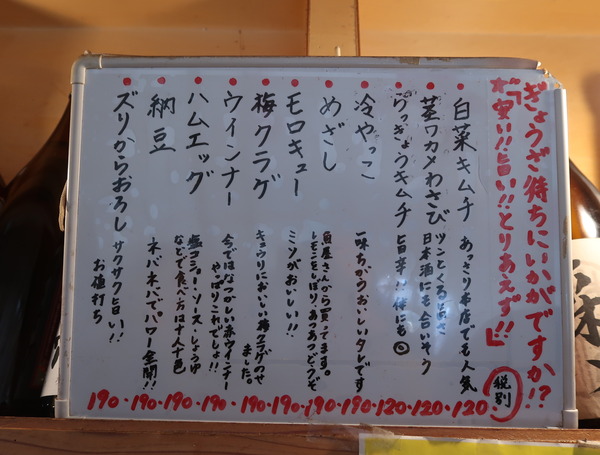 ぎょうざ待ちにいかがですか!?
「安い!!旨い!!とりあえず!!」
税別
白菜キムチ あっさり本店でも人気 120
茎ワカメわさび ツンとくる辛さ 日本酒にも合いそう 120
らっきょうキムチ 旨辛!! 体にも◎ 120
冷やっこ 一味ちがうおいしいタレです 190
めざし 魚屋さんから買ってます。 レモンをしぼり、あつあつどうぞ 190
モロキュー ミソがおいしい!! 190
梅クラゲ キュウリにおいしい梅クラゲのせ ました。 190
ウインナー 今ではなつかしい赤ウインナー やっぱりこれでしょ!! 190
ハムエッグ 塩コショー・ソース・しょうゆ などで食べ方は十人十色 190
納豆 ネバネバでパワー全開!! 190
ズリからおろし サクサク旨い!! お値打ち 190